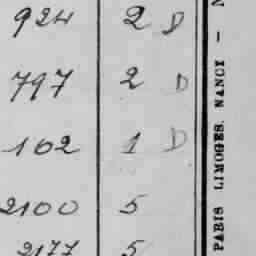 924 2 D
797 2 D
102 1 D
2100 5
2177 5
PARIS LIMOGES. NANCY —